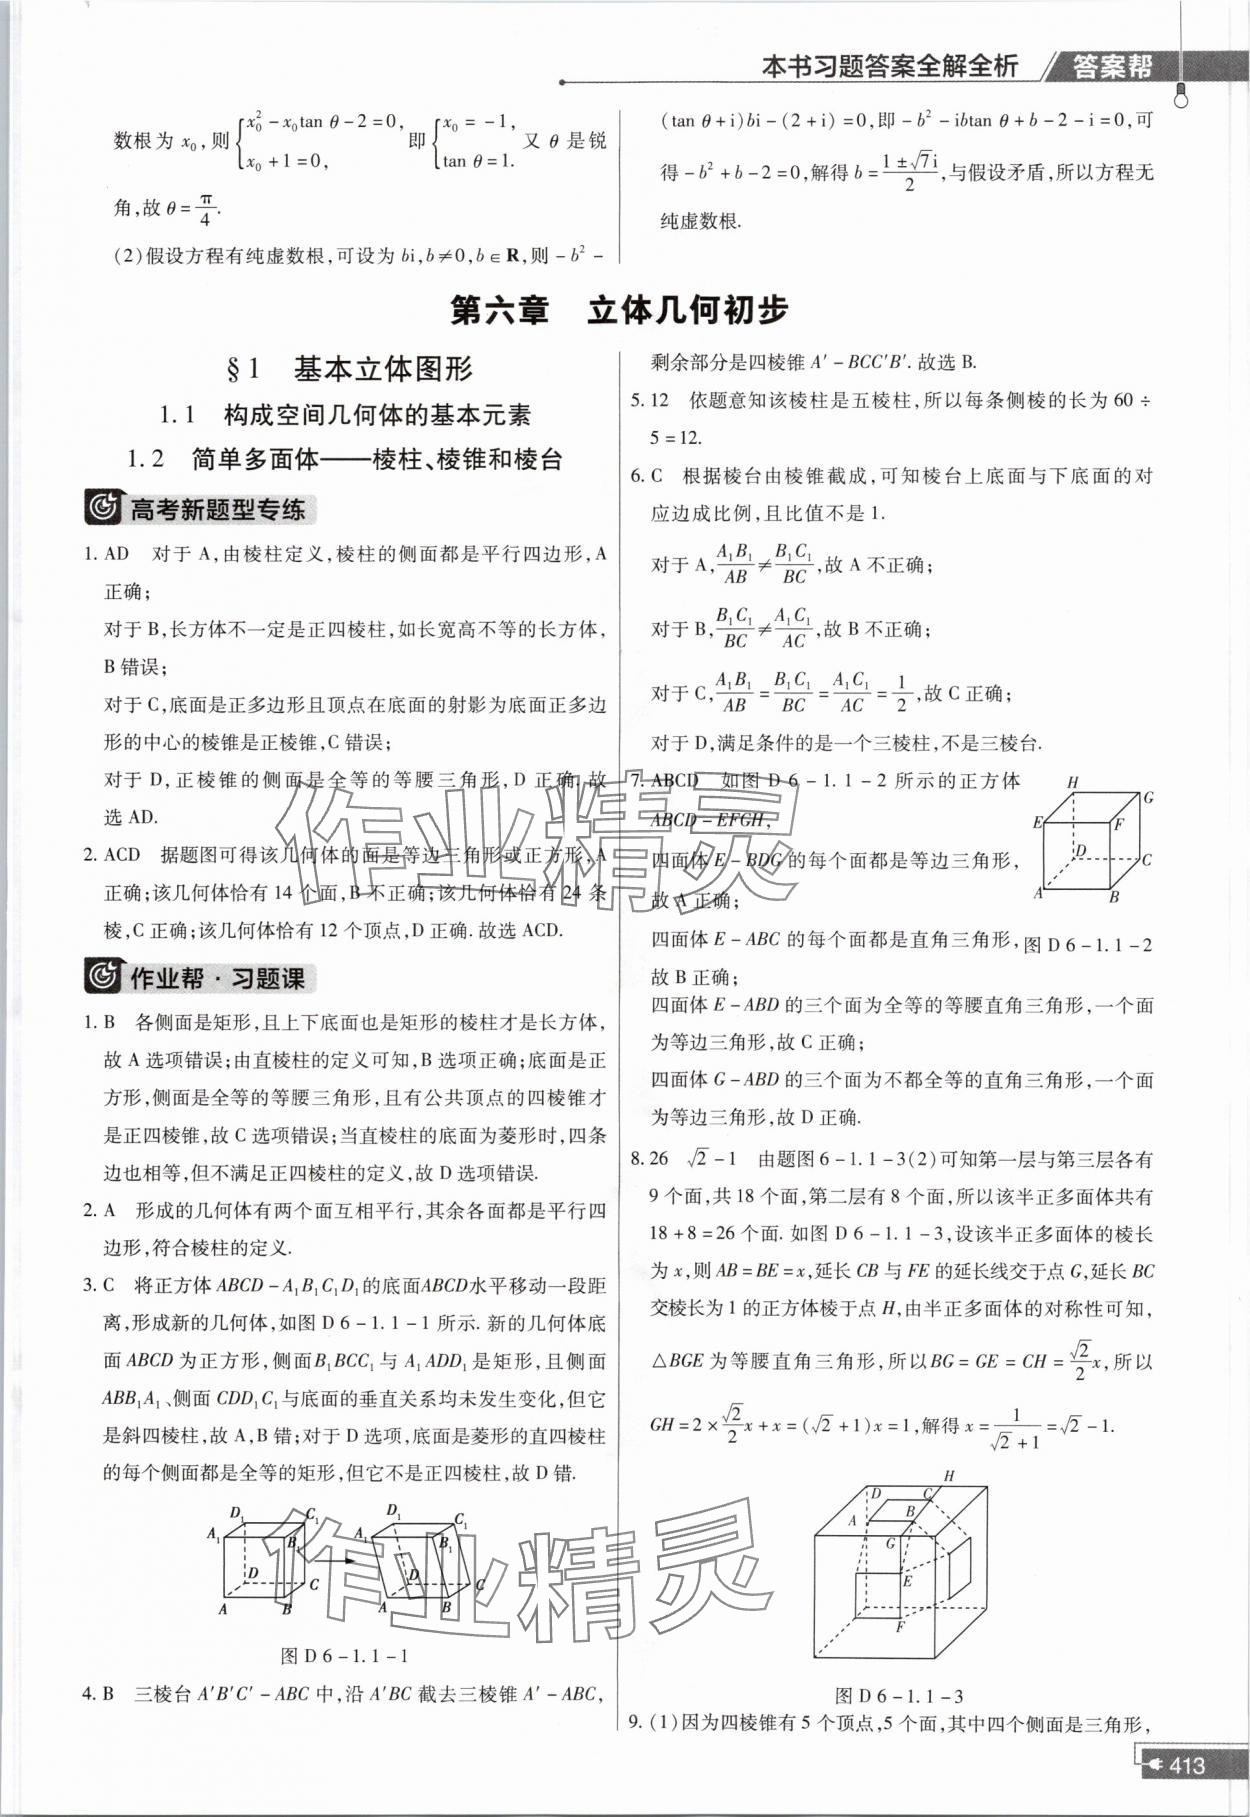 本书习题答案全解全析 答案帮
数根为 x₀,则{x₀²-x₀tan θ-2=0, x₀+1=0, 即{x₀=-1, tan θ=1. 又 θ 是锐
角,故 θ=π/4.
(2)假设方程有纯虚数根,可设为 bi,b≠0,b∈R,则 -b²-
(tan θ+i)bi-(2+i)=0,即-b²-ibtan θ+b-2-i=0,可
得-b²+b-2=0,解得 b=(1±√7i)/2,与假设矛盾,所以方程无
纯虚数根.
第六章 立体几何初步
§1 基本立体图形
1.1 构成空间几何体的基本元素
1.2 简单多面体——棱柱、棱锥和棱台
高考新题型专练
1. AD 对于 A,由棱柱定义,棱柱的侧面都是平行四边形,A
正确;
对于 B,长方体不一定是正四棱柱,如长宽高不等的长方体,
B 错误;
对于 C,底面是正多边形且顶点在底面的射影为底面正多边
形的中心的棱锥是正棱锥,C 错误;
对于 D,正棱锥的侧面是全等的等腰三角形,D 正确.故
选 AD.
2. ACD 据题图可得该几何体的面是等边三角形或正方形,A
正确;该几何体恰有 14 个面,B 不正确;该几何体恰有 24 条
棱,C 正确;该几何体恰有 12 个顶点,D 正确.故选 ACD.
作业帮·习题课
1. B 各侧面是矩形,且上下底面也是矩形的棱柱才是长方体,
故 A 选项错误;由直棱柱的定义可知,B 选项正确;底面是正
方形,侧面是全等的等腰三角形,且有公共顶点的四棱锥才
是正四棱锥,故 C 选项错误;当直棱柱的底面为菱形时,四条
边也相等,但不满足正四棱柱的定义,故 D 选项错误.
2. A 形成的几何体有两个面互相平行,其余各面都是平行四
边形,符合棱柱的定义.
3. C 将正方体 ABCD-A₁B₁C₁D₁的底面ABCD水平移动一段距
离,形成新的几何体,如图 D 6-1.1-1 所示.新的几何体底
面 ABCD 为正方形,侧面B₁BCC₁与 A₁ADD₁是矩形,且侧面
ABB₁A₁、侧面 CDD₁C₁与底面的垂直关系均未发生变化,但它
是斜四棱柱,故 A,B 错;对于 D 选项,底面是菱形的直四棱柱
的每个侧面都是全等的矩形,但它不是正四棱柱,故 D 错.
D₁ C₁ A₁ B₁ D C A B
D₁ C₁ A₁ B₁ D C A B
图 D 6-1.1-1
4. B 三棱台 A′B′C′-ABC 中,沿 A′BC 截去三棱锥 A′-ABC,
剩余部分是四棱锥 A′-BCC′B′.故选 B.
5. 12 依题意知该棱柱是五棱柱,所以每条侧棱的长为 60÷
5=12.
6. C 根据棱台由棱锥截成,可知棱台上底面与下底面的对
应边成比例,且比值不是 1.
对于 A,A₁B₁/AB≠B₁C₁/BC,故 A 不正确;
对于 B,B₁C₁/BC≠A₁C₁/AC,故 B 不正确;
对于 C,A₁B₁/AB=B₁C₁/BC=A₁C₁/AC=1/2,故 C 正确;
对于 D,满足条件的是一个三棱柱,不是三棱台.
7. ABCD 如图 D 6-1.1-2 所示的正方体
ABCD-EFGH,
四面体 E-BDG 的每个面都是等边三角形,
故 A 正确;
四面体 E-ABC 的每个面都是直角三角形,
故 B 正确;
H G E F D C A B
图 D 6-1.1-2
四面体 E-ABD 的三个面为全等的等腰直角三角形,一个面
为等边三角形,故 C 正确;
四面体 G-ABD 的三个面为不都全等的直角三角形,一个面
为等边三角形,故 D 正确.
8. 26 √2-1 由题图 6-1.1-3(2)可知第一层与第三层各有
9 个面,共 18 个面,第二层有 8 个面,所以该半正多面体共有
18+8=26 个面.如图 D 6-1.1-3,设该半正多面体的棱长
为 x,则 AB=BE=x,延长 CB 与 FE 的延长线交于点 G,延长 BC
交棱长为 1 的正方体棱于点 H,由半正多面体的对称性可知,
△BGE 为等腰直角三角形,所以BG=GE=CH=√2/2x,所以
GH=2×√2/2x+x=(√2+1)x=1,解得 x=1/(√2+1)=√2-1.
H D C A B G E F
图 D 6-1.1-3
9. (1)因为四棱锥有 5 个顶点,5 个面,其中四个侧面是三角形,
413
作业精灵
作业精灵